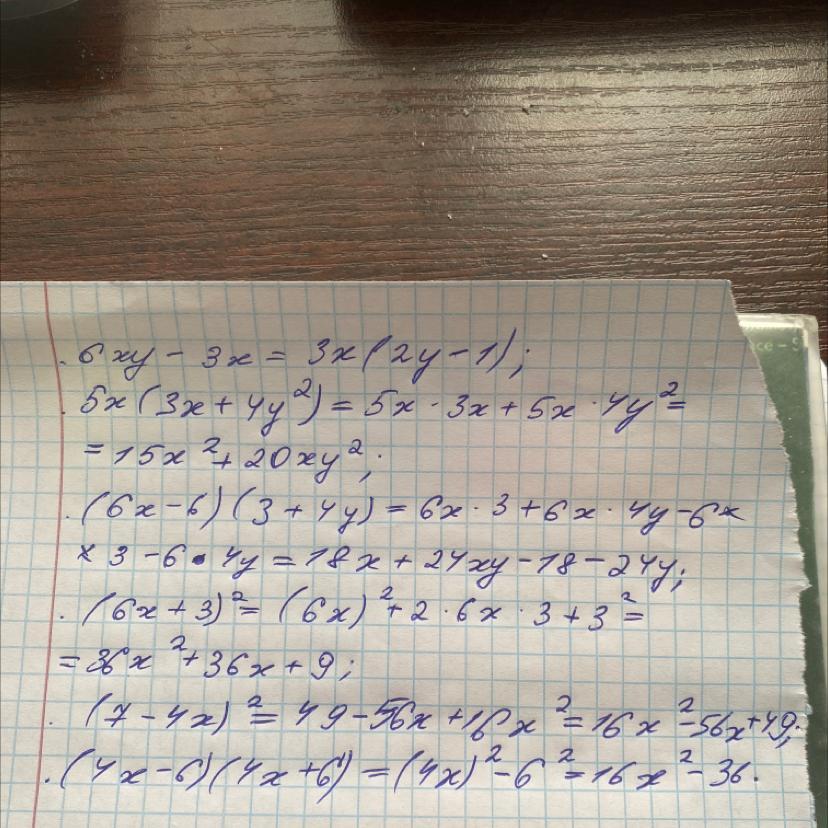 . 6xy - 3x = 3x(2y-1);
. 5x(3x+4y²) = 5x · 3x + 5x · 4y² =
= 15x² + 20xy²;
. (6x-6)(3+4y) = 6x · 3 + 6x · 4y - 6 ×
× 3 - 6 · 4y = 18x + 24xy - 18 - 24y;
. (6x+3)² = (6x)² + 2 · 6x · 3 + 3² =
= 36x² + 36x + 9;
. (7-4x)² = 49 - 56x + 16x² = 16x² - 56x + 49;
. (4x-6)(4x+6) = (4x)² - 6² = 16x² - 36.